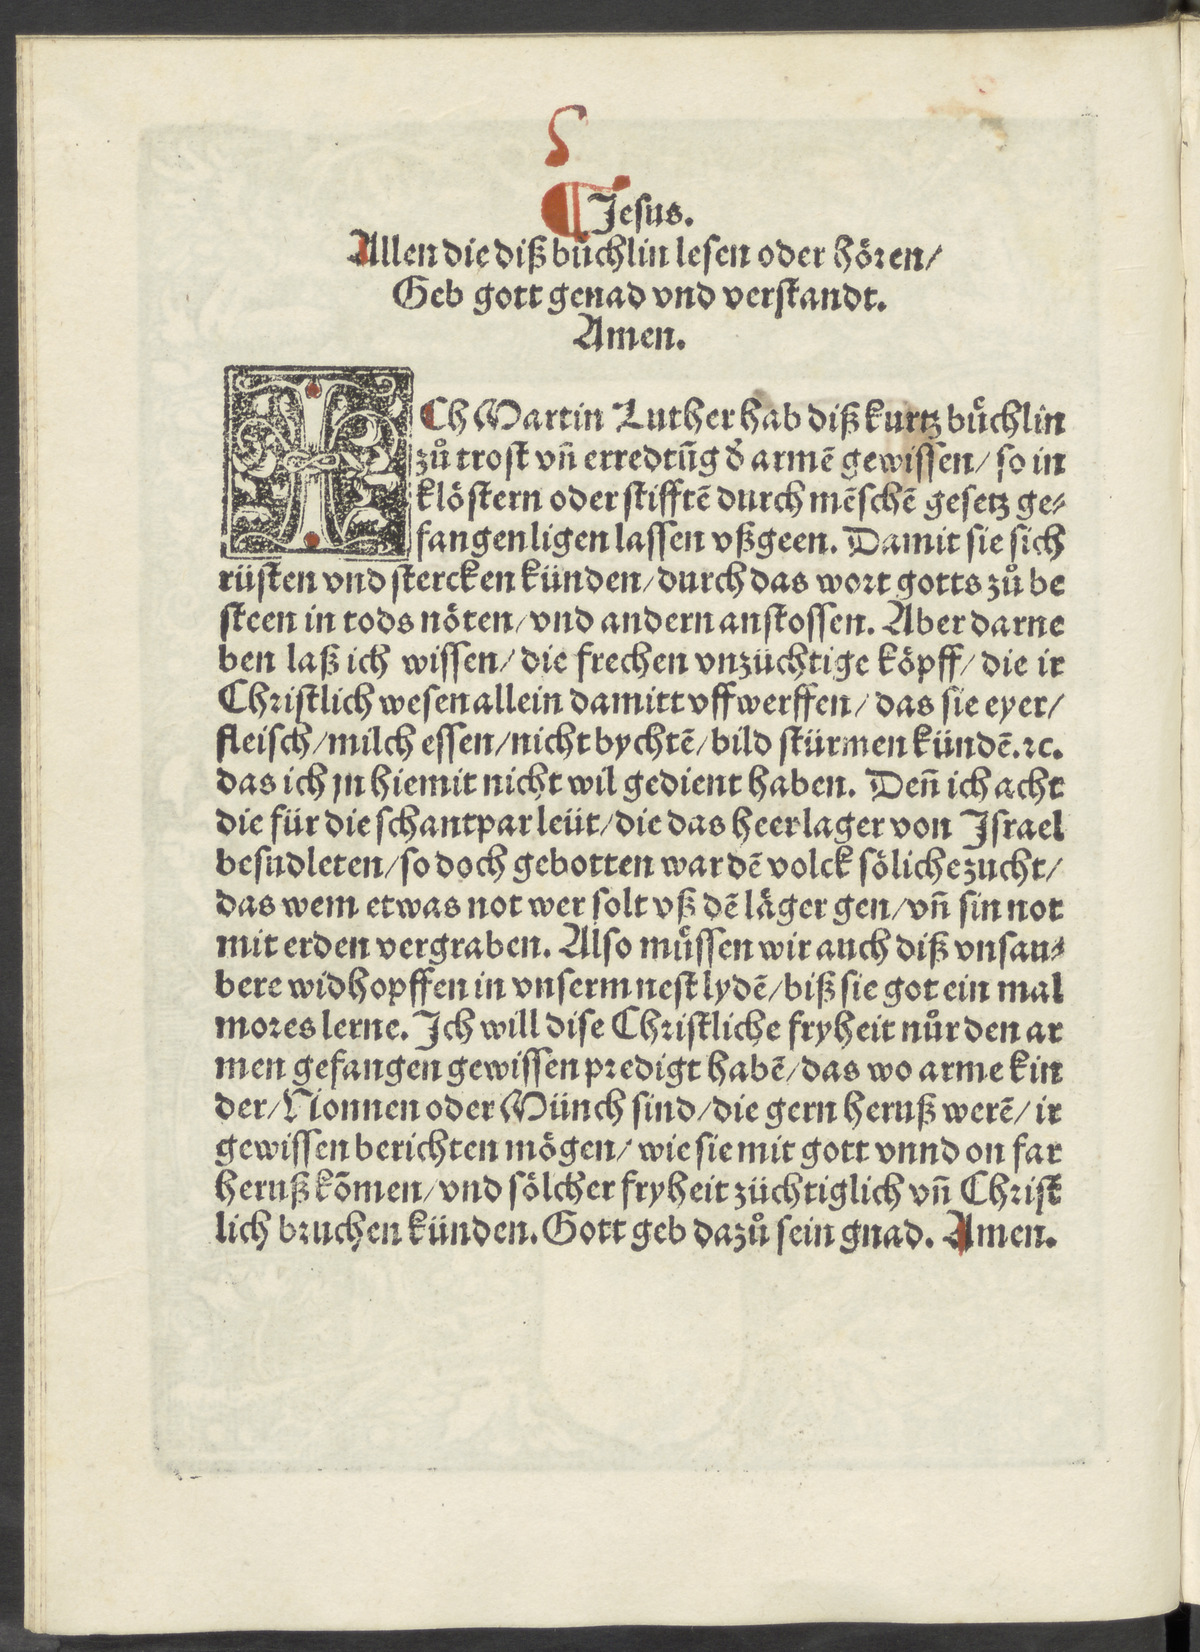 ¶ Jesus.
Allen die diß buͤchlin lesen oder hoͤren/
Geb gott genad vnd verstandt.
Amen.
ICh Martin Luther hab diß kurtz buͤchlin
zuͦ trost vn̄ erredtūg d̓ armē gewissen/ so in
kloͤstern oder stifftē durch mēschē gesetz ge⸗
fangen ligen lassen vßgeen. Damit sie sich
ruͤsten vnd stercken kuͤnden/ durch das wort gotts zuͦ be
steen in tods noͤten/ vnd andern anstossen. Aber darne
ben laß ich wissen/ die frechen vnzuͤchtige koͤpff/ die ir
Christlich wesen allein damitt vffwerffen/ das sie eyer/
fleisch/ milch essen/ nicht bychtē/ bild stuͤrmen kuͤndē. ꝛc.
das ich jn hiemit nicht wil gedient haben. Den̄ ich acht
die fuͤr die schantpar leuͤt/ die das heerlager von Israel
besudleten/ so doch gebotten war dē volck soͤliche zucht/
das wem etwas not wer solt vß dē laͤger gen/ vn̄ sin not
mit erden vergraben. Also muͤssen wir auch diß vnsau⸗
bere widhopffen in vnserm nest lydē/ biß sie got ein mal
mores lerne. Ich will dise Christliche fryheit nuͦr den ar
men gefangen gewissen predigt habē/ das wo arme kin
der/ Nonnen oder Muͤnch sind/ die gern heruß werē/ ir
gewissen berichten moͤgen/ wie sie mit gott vnnd on far
heruß kōmen/ vnd soͤlcher fryheit zuͤchtiglich vn̄ Christ
lich bruchen kuͤnden. Gott geb dazuͦ sein gnad. Amen.